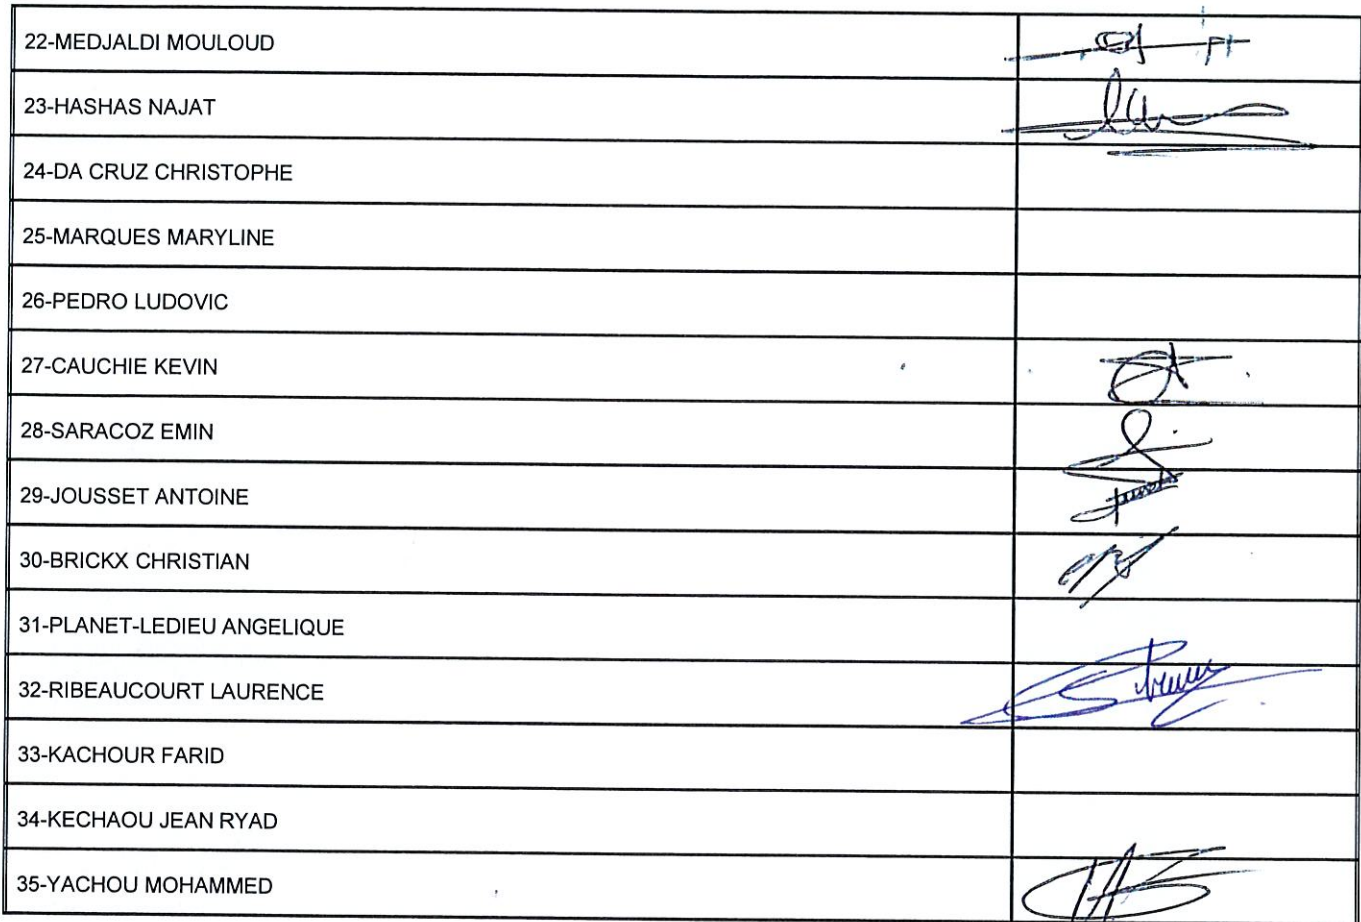 22-MEDJALDI MOULOUD
23-HASHAS NAJAT
24-DA CRUZ CHRISTOPHE
25-MARQUES MARYLINE
26-PEDRO LUDOVIC
27-CAUCHIE KEVIN
28-SARACOZ EMIN
29-JOUSSET ANTOINE
30-BRICKX CHRISTIAN
31-PLANET-LEDIEU ANGELIQUE
32-RIBEAUCOURT LAURENCE
33-KACHOUR FARID
34-KECHAOU JEAN RYAD
35-YACHOU MOHAMMED